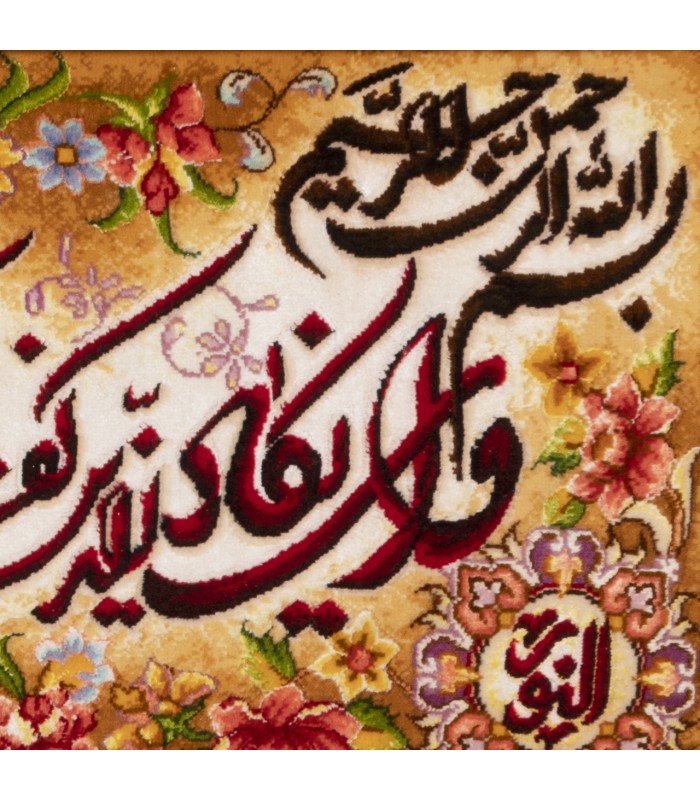 بسم الله الرحمن الرحیم
وان یکاد الذین کفر
النور